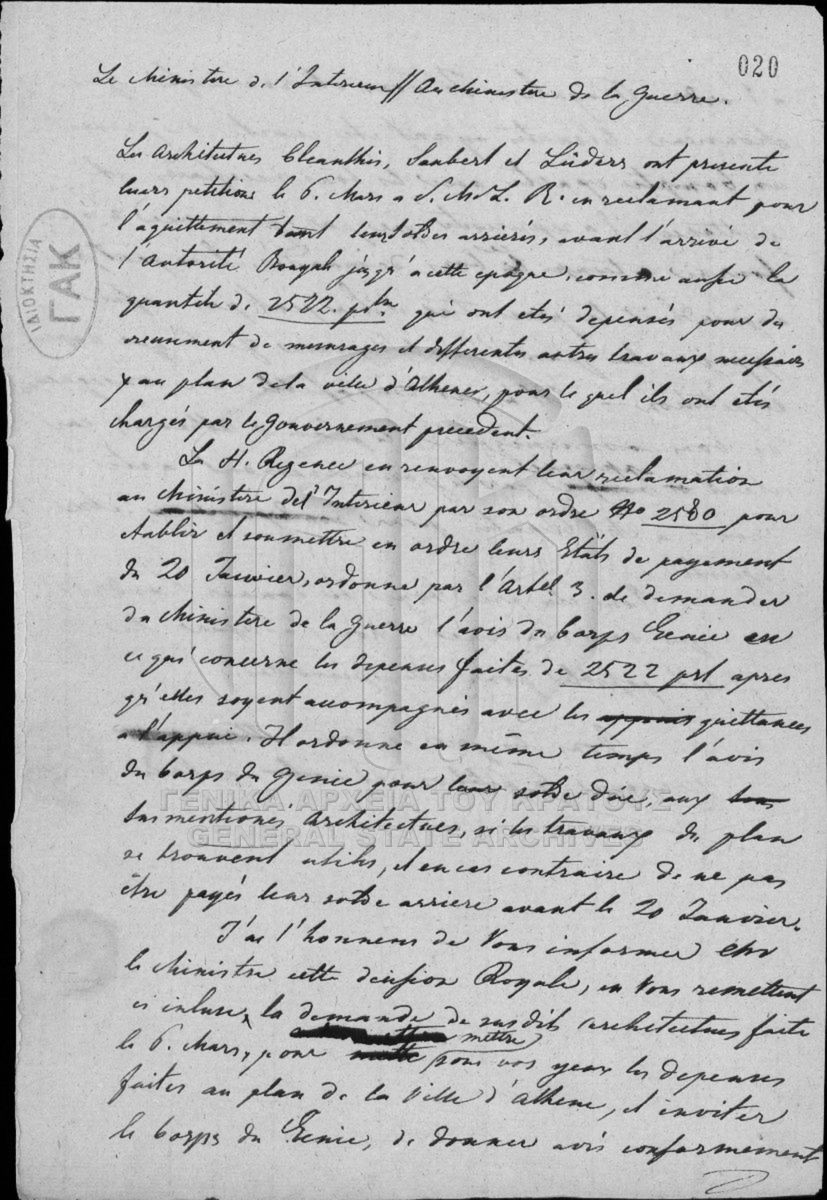 020
Le Ministre de l'Interieur // Au Ministere de la Guerre.
Les Architectes Cleanthis, Saubert et Lüders ont presente
leurs petitions le 6. Mars a S. M. L. R. en reclamant pour
l'aquittement leur soldes arrierés, avant l'arrivé de
l'Autorité Royale jusqu'a cette epoque, comme aussi la
quantité de 2522. qui ont etés depensés pour des
creusement de mesurages et differentes autres travaux necessaires
au plan de la ville d'Athenes, pour le quel ils ont etés
chargés par le Gouvernement precedent.
La H. Regence en renvoyent leur reclamation
au Ministere de l'Interieur par son ordre No 2580 pour
etablir et soumettre en ordre leurs Etâts de payement
du 20 Janvier, ordonne par l'Artcl 3. de demander
du Ministere de la Guerre l'avis du Corps Genie en
ce qui concerne les depenses faites de 2522 apres
qu'elles soyent accompagnés avec les quittances
a l'appui. Il ordonne en même temps l'avis
du Corps du Genie pour leur solde due, aux
susmentionés Architectes, si les travaux du plan
se trouvent utiles, et en cas contraire de ne pas
être payés leur solde arriere avant le 20 Janvier.
J'ai l'honneur de Vous informer
le Ministre cette decision Royale, en Vous remettent
ci incluse, la demande de susdits Architectes faite
le 6. Mars, pour mettre sous vos yeux les depenses
faites au plan de la Ville d'Athene, et inviter
le Corps du Genie, de donner avis conformement
ΙΔΙΟΚΤΗΣΙΑ
ΓΑΚ
ΓΕΝΙΚΑ ΑΡΧΕΙΑ ΤΟΥ ΚΡΑΤΟΥΣ
GENERAL STATE ARCHIVES